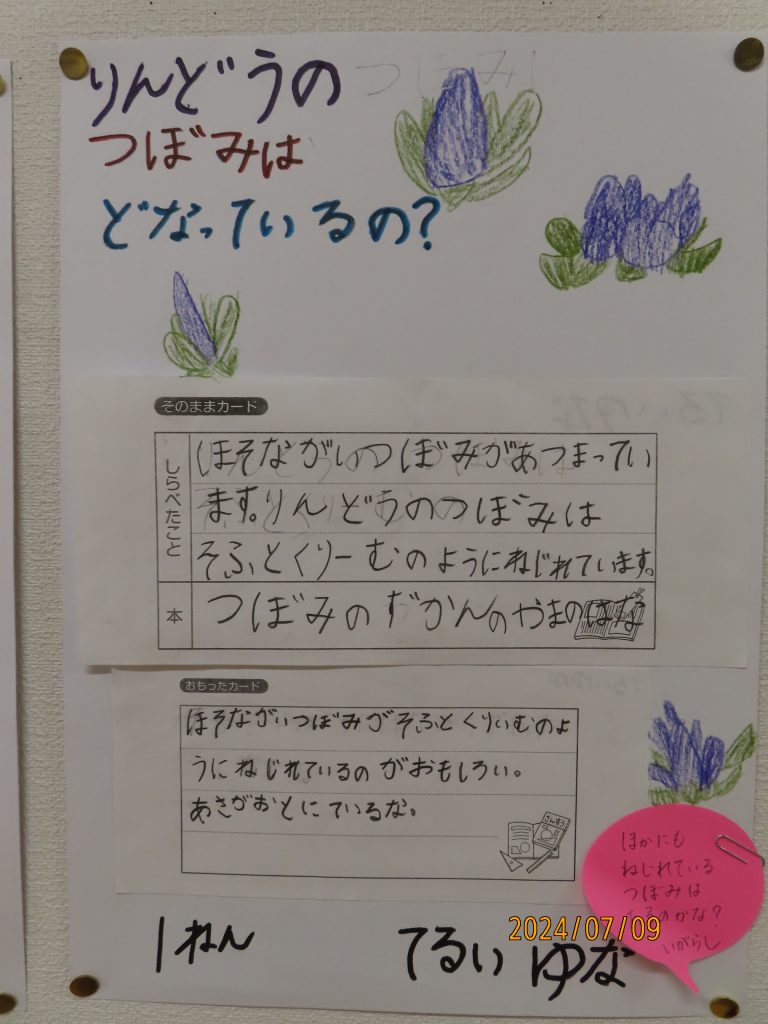 りんどうの
つぼみは
どなっているの?
つぼみ
そのままカード
しらべたこと
ほそながいつぼみがあつまってい
ます。りんどうのつぼみは
そふとくりーむのようにねじれています。
本
つぼみのずかんのやまのはな
てるいゆな
おもったカード
ほそながいつぼみがそふとくりいむのよ
うにねじれているのがおもしろい。
あさがおとにているな。
さんすう
ほかにも
ねじれている
つぼみは
のかな?
いがらし
1ねん
てるい ゆな
2024/07/09